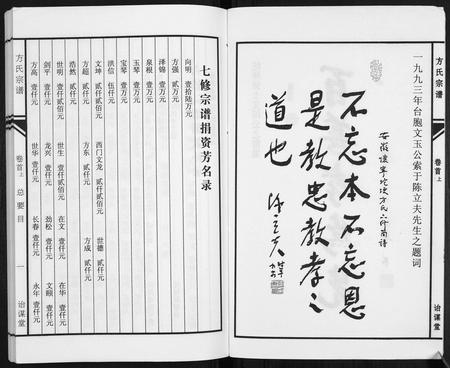 方氏宗谱
卷首上
治谋堂
一九九三年台胞文玉公索于陈立夫先生之题词
安徽
方氏六修宗谱
不忘本不忘恩
是教忠教孝之
道也
陈立夫
七修宗谱捐资芳名录
向明 壹拾陆万元
方强 贰万元
泽锦 壹万元
泉根 壹万元
玉琴 壹万元
宝琴 壹万元
洪信 伍仟元
文坤 贰仟贰佰元 西门文龙 贰仟贰佰元 世德 贰仟元
方超 贰仟元 方东 贰仟元 方成 贰仟元
浩然 贰仟元
世明 壹仟贰佰元 世生 壹仟贰佰元 在文 壹仟元 在华 壹仟元
剑平 壹仟元 龙兴 壹仟元 劲松 壹仟元 文颐 壹仟元
方高 壹仟元 世华 壹仟元 长春 壹仟元 永年 壹仟元
方氏宗谱
卷首上
总要目
一
治谋堂